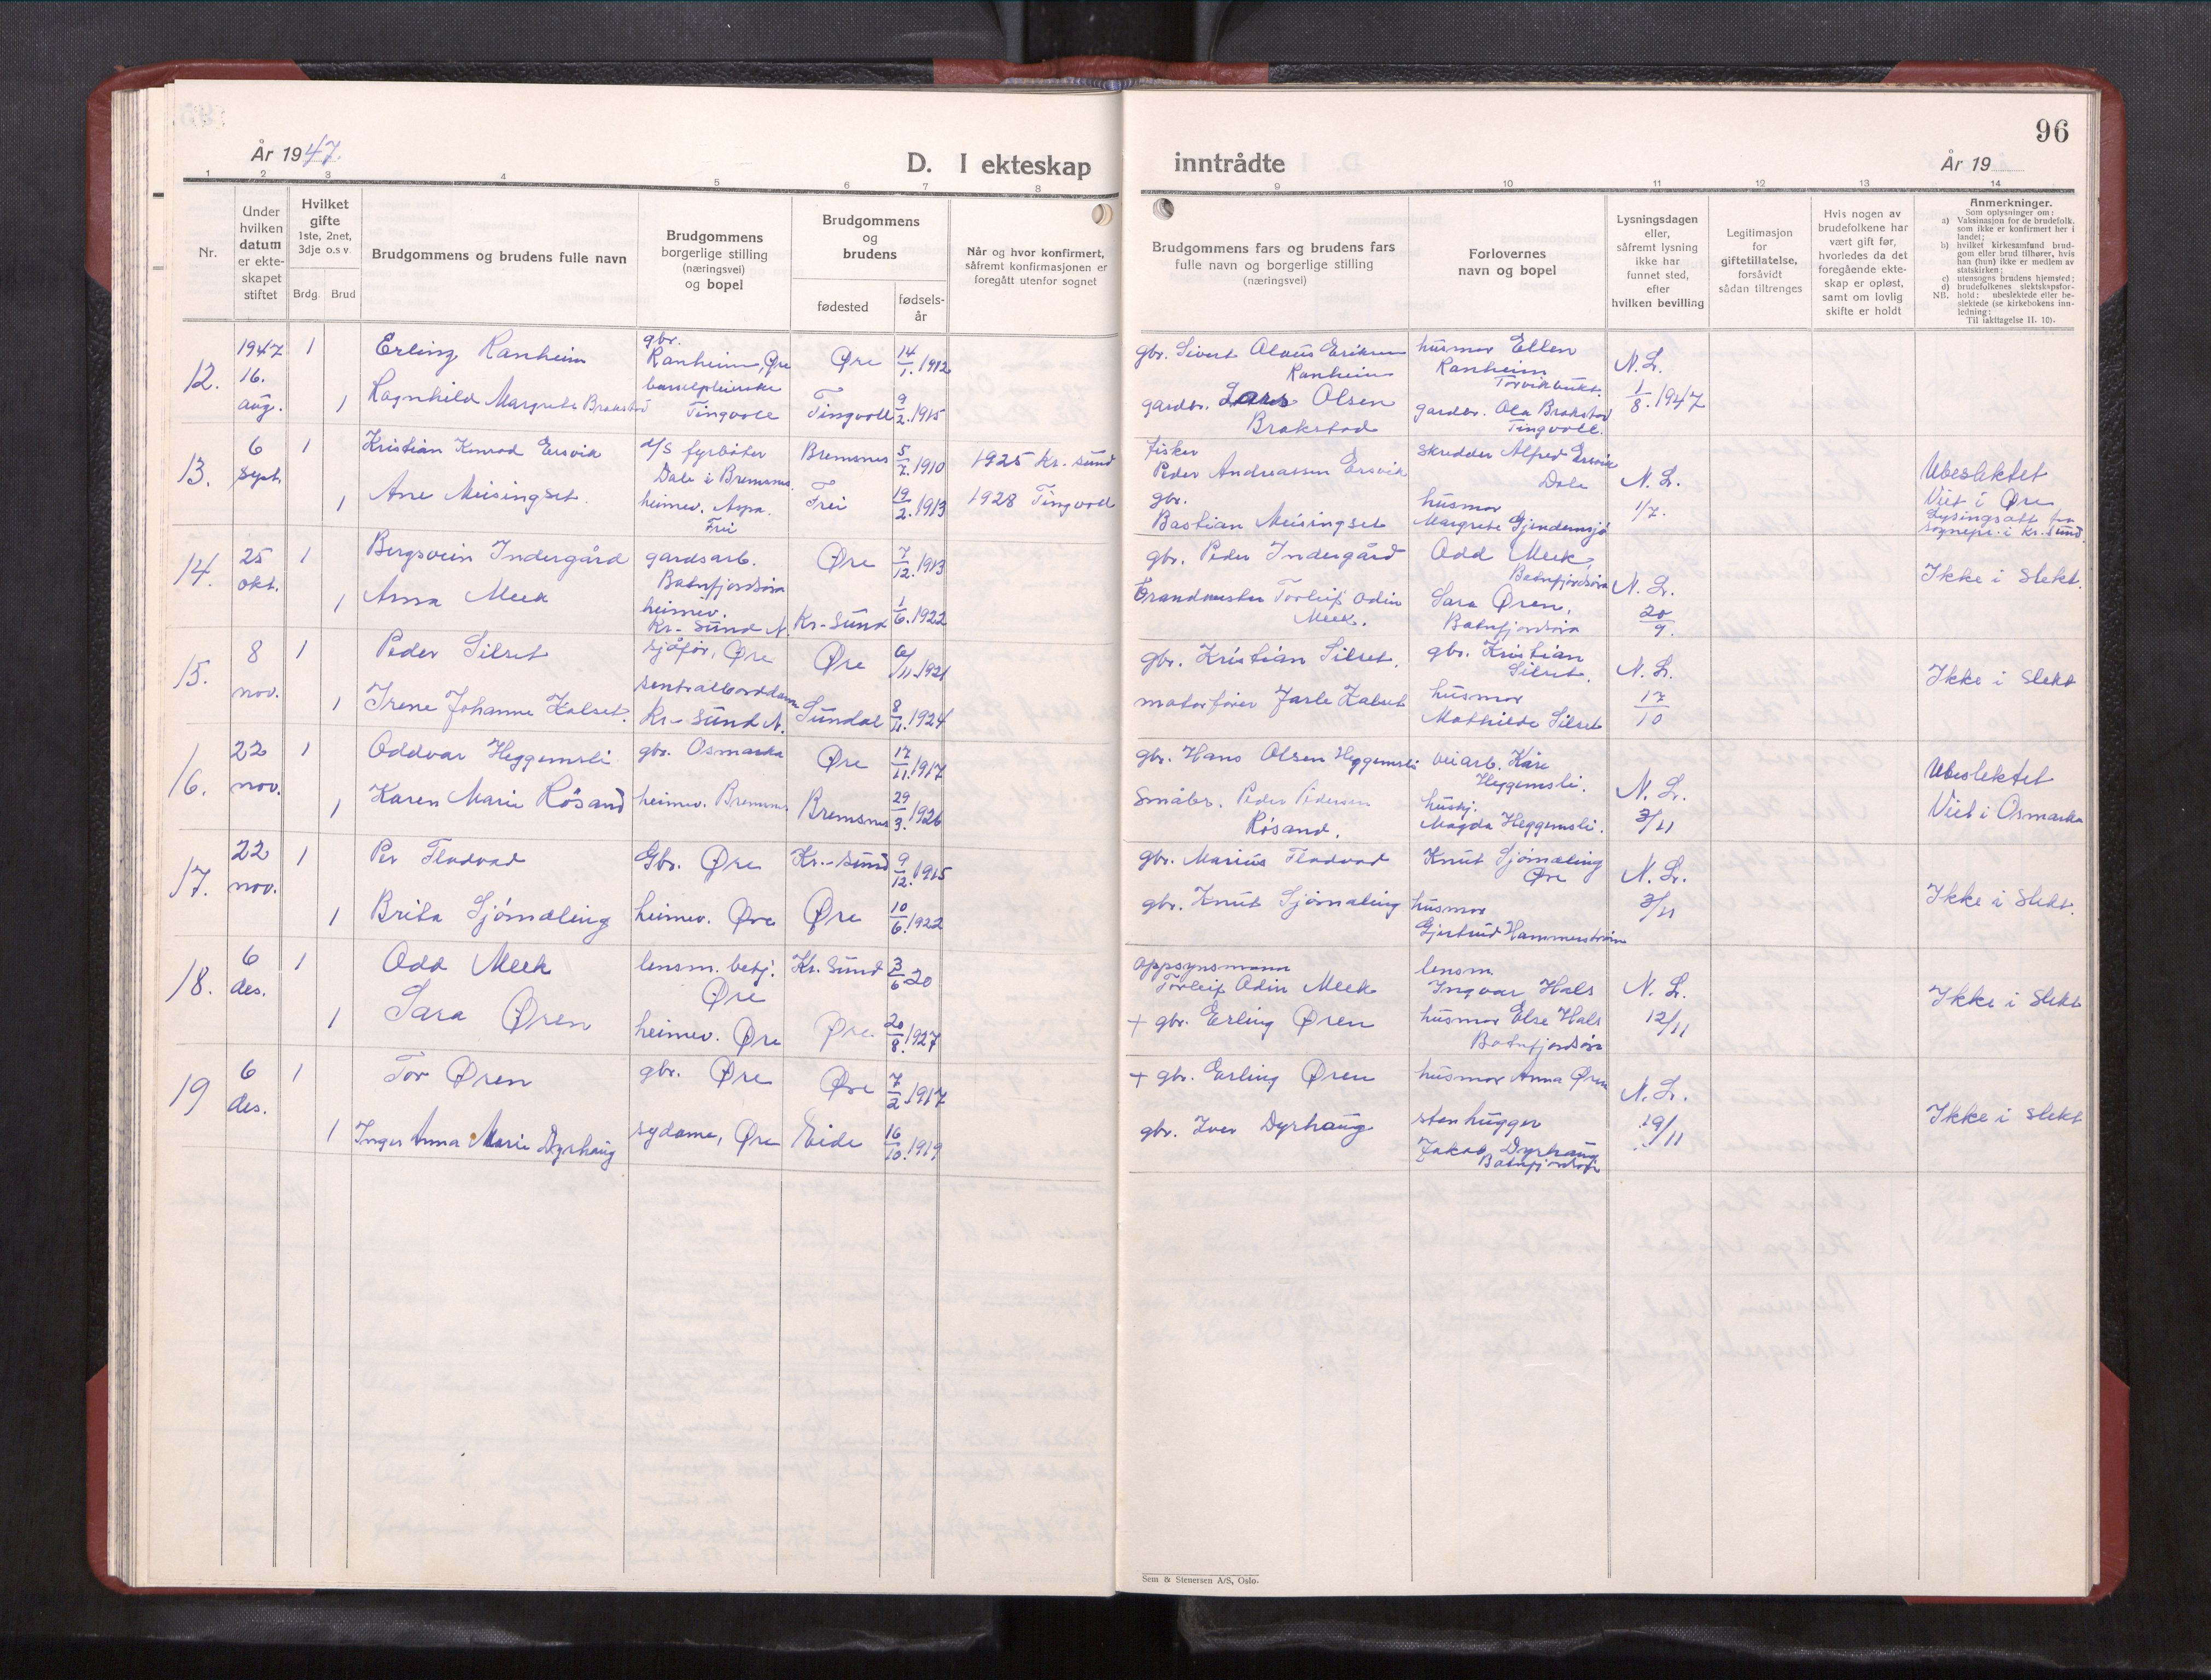 96
År 1947.
D. I ekteskap
inntrådte
År 19
1 2 3 4 5 6 7 8 9 10 11 12 13 14
Nr.
Under
hvilken
datum
er ekte-
skapet
stiftet
Hvilket
gifte
1ste, 2net,
3dje o.s v
Brdg.
Brud
Brudgommens og brudens fulle navn
Brudgommens
borgerlige stilling
(næringsvei)
og bopel
Brudgommens
og
brudens
fødested
fødsels-
år
Når og hvor konfirmert,
såfremt konfirmasjonen er
foregått utenfor sognet
Brudgommens fars og brudens fars
fulle navn og borgerlige stilling
(næringsvei)
Forlovernes
navn og bopel
Lysningsdagen
eller,
såfremt lysning
ikke har
funnet sted,
efter
hvilken bevilling
Legitimasjon
for
giftetillatelse,
forsåvidt
sådan tiltrenges
Hvis nogen av
brudefolkene har
vært gift før,
hvorledes da det
foregående ekte-
skap er opløst,
samt om lovlig
skifte er holdt
Anmerkninger.
Som oplysninger om:
a) Vaksinasjon for de brudefolk,
som ikke er konfirmert her i
landet;
b) hvilket kirkesamfund brud-
gom eller brud tilhører, hvis
han (hun) ikke er medlem av
statskirken;
c) utensogns brudens hjemsted;
d) brudefolkenes slektskapsfor-
NB. hold: ubeslektede eller be-
slektede (se kirkebokens inn-
ledning;
Til iakttagelse II. 10).
12.
1947
16.
aug.
1
Erling Ranheim
gbr.
Ranheim, Øre
Øre
14/1. 1912
gbr. Sivert Olaus Eriksen
Ranheim
husmor Ellen
Ranheim
Torvikbukt.
N. L.
1/8. 1947
1
Ragnhild Margrete Brakstad
Tingvoll
Tingvoll
9/2. 1915
gardbr. Lars Olsen
Brakstad
gardbr. Ola Brakstad
Tingvoll.
13.
6
sept.
1
Kristian Konrad Ersvik
d/s fyrbøter
Dale i Bremsnes.
Bremsnes
5/7. 1910
1925 Kr. sund
fisker
Peder Andreassen Ersvik
skredder Alfred Ersvik
Dale
N. L.
1/7.
Ubeslektet
Viet i Øre
Lysingsatt fra
sognepr. i Kr. sund.
1
Ane Meisingset.
heimev. Aspa.
Frei
Frei
19/2. 1913
1928 Tingvoll
gbr.
Bastian Meisingset
husmor
Margrete Gjendemsjø
14.
25
okt.
1
Bergsvein Indergård
gardsarb.
Batnfjordsøra
Øre
7/12. 1913
gbr. Peder Indergård
Odd Meek,
Batnfjordsøra
N. L.
20/9.
Ikke i slekt.
1
Anna Meek
heimev.
Kr-sund N.
Kr-sund
1/6. 1922
Brandmester Torleif Odin
Meek.
Sara Øren,
Batnfjordsøra
15.
8
nov.
1
Peder Silset
sjåfør, Øre
Øre
6/11. 1921
gbr. Kristian Silset.
gbr. Kristian
Silset.
N. L.
17/10
Ikke i slekt
1
Irene Johanne Kalset.
sentralborddame
Kr-sund N.
Sundal
8/11. 1924
motorfører Jarle Kalset
husmor
Mathilde Silset
16.
22
nov.
1
Oddvar Heggemsli
gbr. Osmarka
Øre
17/11. 1917
gbr. Hans Olsen Heggemsli
veiarb. Kåre
Heggemsli.
N. L.
3/11
Ubeslektet
Viet i Osmarka
1
Karen Marie Røsand
heimev. Bremsnes
Bremsnes
29/3. 1926
småbr. Peder Pedersen
Røsand.
hushj.
Magda Heggemsli.
17.
22
nov.
1
Per Fladvad
Gbr. Øre
Kr.-sund
9/12. 1915
gbr. Marius Fladvad
Knut Sjømæling
Øre
N. L.
3/11
Ikke i slekt.
1
Brita Sjømæling
heimev. Øre
Øre
10/6. 1922
gbr. Knut Sjømæling
husmor
Gjertrud Hammerstrøm
18.
6
des.
1
Odd Meek
lensm. betj.
Øre
Kr. sund
3/6 20
oppsynsmann
Torleif Odin Meek
lensm.
Ingvar Hals
N. L.
12/11
Ikke i slekt
1
Sara Øren
heimev. Øre
Øre
20/8. 1927
+ gbr. Erling Øren
husmor Else Hals
Batnfjordsøra
19
6
des.
1
Tor Øren
gbr. Øre
Øre
7/2. 1917
+ gbr. Erling Øren
husmor Anna Øren
N. L.
19/11
Ikke i slekt
1
Inger Anna Marie Dyrhaug
sydame, Øre
Eide
16/10. 1919
gbr. Iver Dyrhaug
stenhugger
Jakob Dyrhaug
Batnfjordsøra
Sem & Stenersen A/S, Oslo.